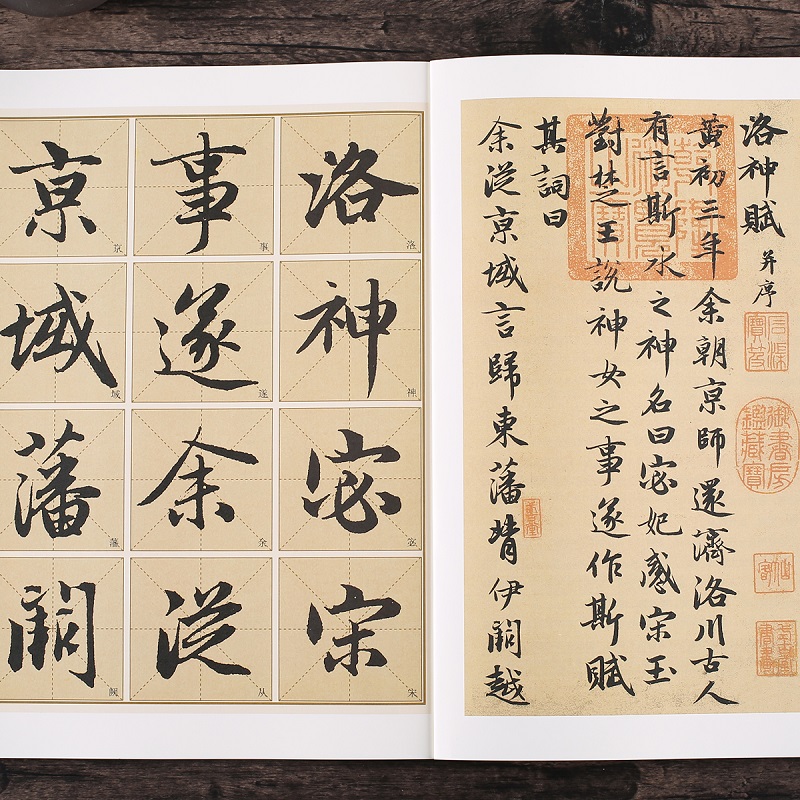 洛神賦 并序
黄初三年余朝亰師還濟洛川古人
有言斯水之神名曰宓妃感宋玉
對楚王說神女之事遂作斯賦
其詞曰
余從亰域言歸東藩背伊闕越
石渠寶笈
御書房鑑藏寶
洛 洛
神 神
宓 宓
宋 宋
事 事
遂 遂
余 余
從 从
亰 京
域 域
藩 藩
闕 阙